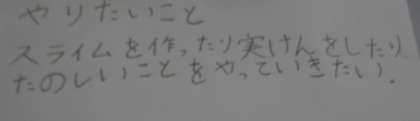 やりたいこと
スライムを作ったり実けんをしたり
たのしいことをやっていきたい.